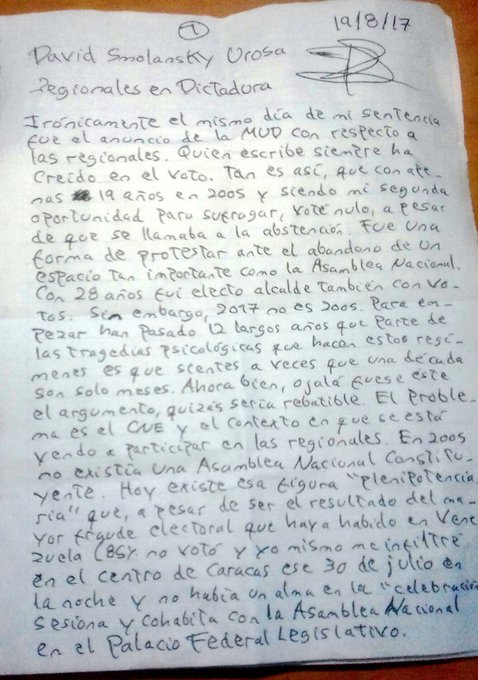 1
19/8/17
David Smolansky Urosa
Regionales en Dictadura
Irónicamente el mismo día de mi sentencia
fue el anuncio de la MUD con respecto a
las regionales. Quien escribe siempre ha
creído en el voto. Tan es así, que con ape-
nas 19 años en 2005 y siendo mi segunda
oportunidad para sufragar, voté nulo, a pesar
de que se llamaba a la abstención. Fue una
forma de protestar ante el abandono de un
espacio tan importante como la Asamblea Nacional.
Con 28 años fui electo alcalde también con vo-
tos. Sin embargo, 2017 no es 2005. Para em-
pezar han pasado 12 largos años que parte de
las tragedias psicológicas que hacen estos regí-
menes es que sientes a veces que una década
son solo meses. Ahora bien, ojalá fuese este
el argumento, quizás sería rebatible. El proble-
ma es el CNE y el contexto en que se está
yendo a participar en las regionales. En 2005
no existía una Asamblea Nacional Constitu-
yente. Hoy existe esa figura "plenipotencia-
ria" que, a pesar de ser el resultado del ma-
yor fraude electoral que haya habido en Vene
zuela (85% no votó y yo mismo me infiltré
en el centro de Caracas ese 30 de julio en
la noche y no había un alma en la "celebración
sesiona y cohabita con la Asamblea Nacional
en el Palacio Federal Legislativo.